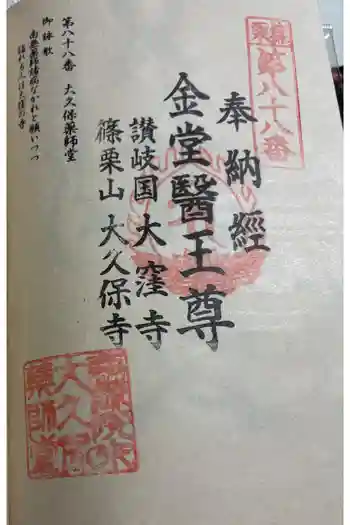 篠栗
第八十八番
奉納經
金堂醫王尊
讃岐国大窪寺
篠栗山大久保寺
第八十八番 大久保薬師堂
御詠歌
南無薬師諸病なかれと願いつつ
詣れる人は大窪の寺
大久保
薬師堂